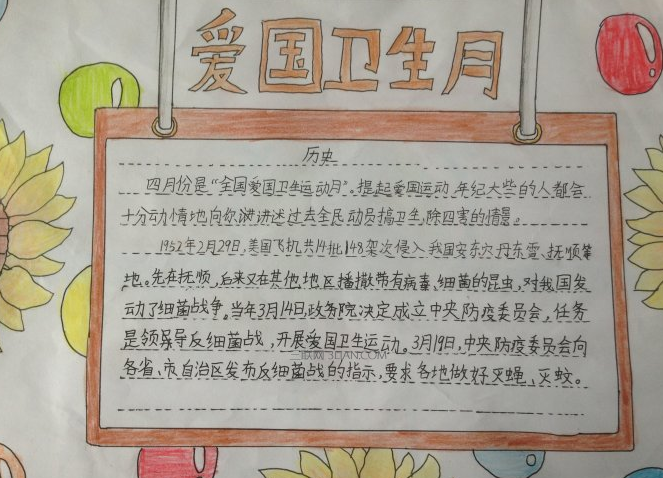 爱国卫生月
历史
四月份是“全国爱国卫生运动月”。提起爱国运动,年纪大些的人都会
十分动情地向你讲述过去全民动员搞卫生,除四害的情景。
1952年2月29日,美国飞机共14批148架次侵入我国安东、丹东、抚顺等
地。先在抚顺,后来又在其他地区播撒带有病毒、细菌的昆虫,对我国发
动了细菌战争。当年3月14日,政务院决定成立中央防疫委员会,任务
是领导反细菌战,开展爱国卫生运动。3月19日,中央防疫委员会向
各省、市自治区发布反细菌战的指示,要求各地做好灭蝇、灭蚊。
三联网 3LIAN.COM